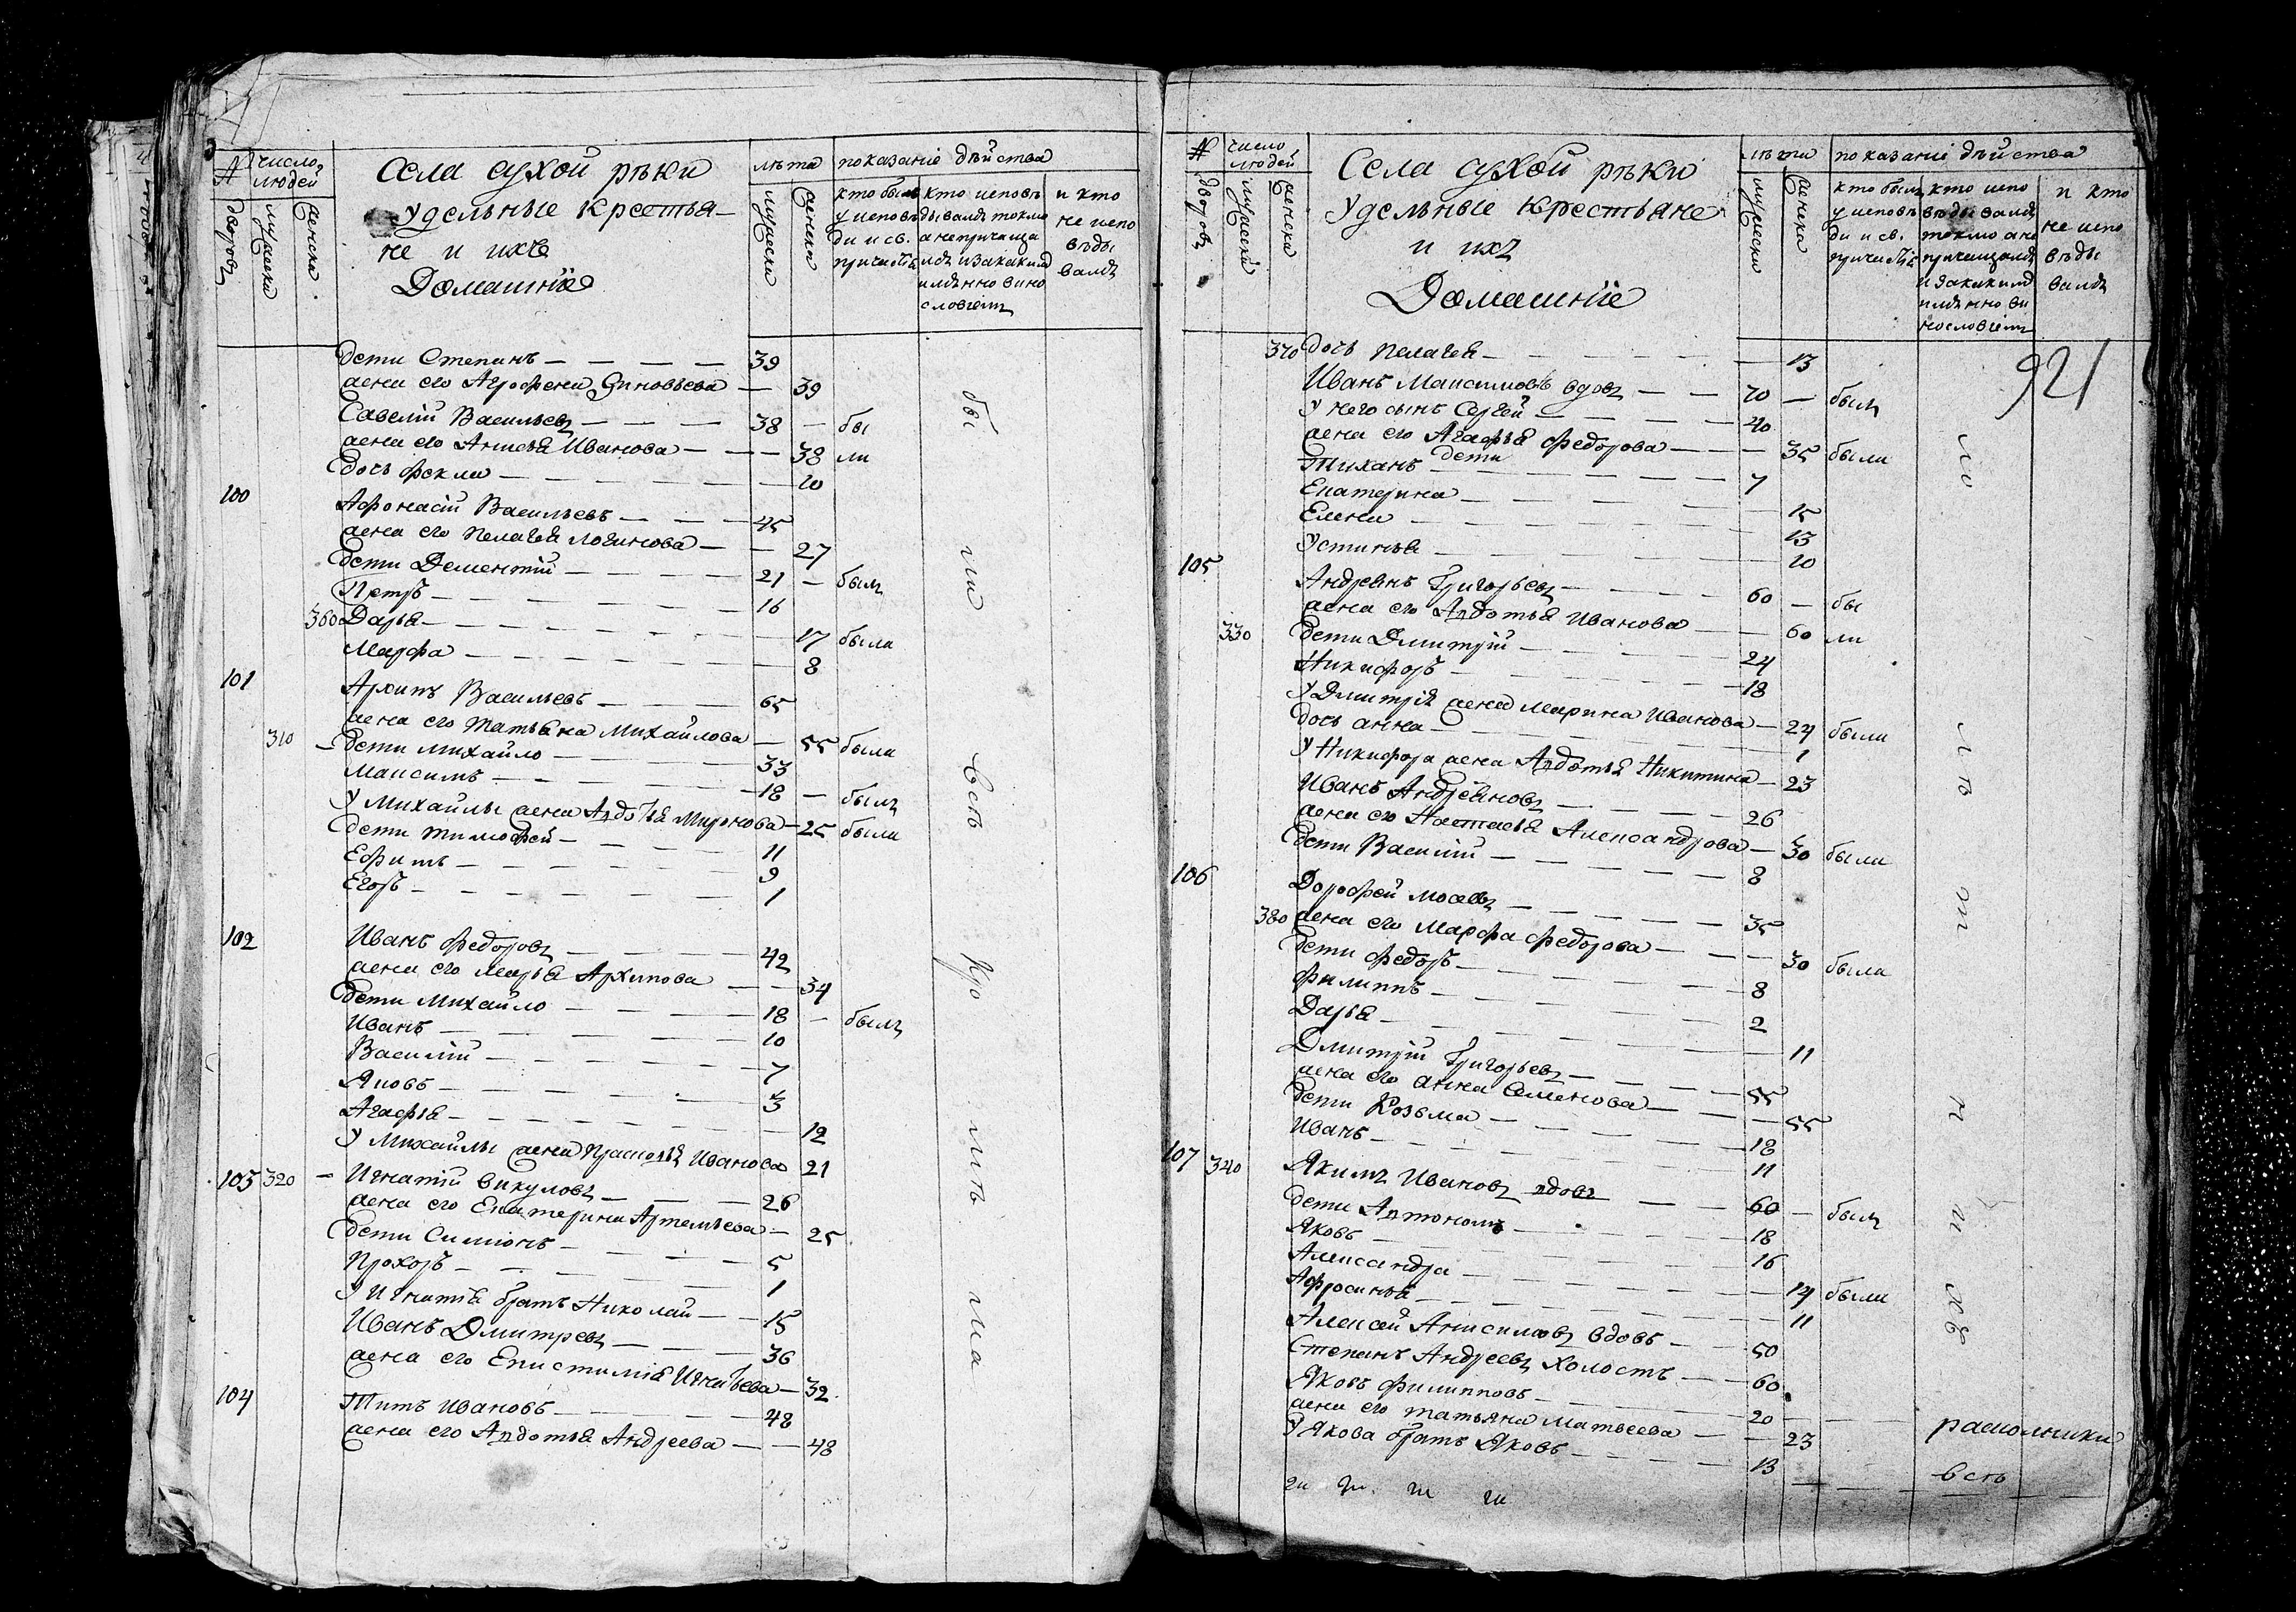 №
число людей
Села сухой рѣки
лѣта
показаніе дѣйства
дворовъ
мужеска
женска
Удельные Крестья-
не и ихъ
Домашніе
мужеска
женска
кто былъ у исповѣди и св. причастія
кто исповѣдывался токмо а не причащался и за какимъ имянно винословіемъ
и кто не исповѣдывался
дети Степанъ — 39
жена его Агрофена Зиновьева — 39
Савелій Васильевъ — 38 — бы
жена его Анисья Иванова — 38 ли
дочь Фекла — 10
100 Афонасій Васильевъ — 45
жена его Пелагея Логинова — 27
дети Дементій — 21 — былъ
Петръ — 16
360 Дарья — 17 была
Марфа — 8
101 Архипъ Васильевъ — 65
жена его Татьяна Михайлова — 55 была
310 — дети Михайло — 33
Максимъ — 18 — былъ
У Михайлы жена Авдотья Миронова — 25 была
дети Тимофей — 11
Ефимъ — 9
Егоръ — 1
102 Иванъ Федоровъ — 42
жена его Марья Архипова — 34
дети Михайло — 18 — былъ
Иванъ — 10
Василій — 7
Яковъ — 3
Агафья — 12
У Михайлы жена Прасковья Иванова 21
103 320 — Игнатій Викуловъ — 26
жена его Екатерина Артемьева — 25
дети Симионъ — 5
Прохоръ — 1
У Игнатія братъ Николай — 15
Иванъ Дмитревъ — 36
жена его Епистимія Игнатьева — 32
104 Титъ Ивановъ — 48
жена его Авдотья Андреева — 48
бы ли всѣ кро мѣ ма
№
число людей
Села сухой рѣки
лѣта
показаніе дѣйства
дворовъ
мужеска
женска
Удельные Крестьяне
и ихъ
Домашніе
мужеска
женска
кто былъ у исповѣди и св. причастія
кто исповѣдывался токмо а не причащался и за какимъ имянно винословіемъ
и кто не исповѣдывался
921
370 дочь Пелагея — 13
Иванъ Максимовъ вдовъ — 70 — былъ
У него сынъ Сергей — 40
жена его Агафья Федорова — 35 были
дети
Тиханъ — 7
Екатерина — 15
Елена — 13
Устинья — 10
105 Андреянъ Григорьевъ — 60 — бы
жена его Авдотья Иванова — 60 ли
330 дети Дмитрій — 24
Никифоръ — 18
У Дмитрія жена Марина Иванова — 24 были
дочь Анна — 1
У Никифора жена Авдотья Никитина — 23
Иванъ Андреяновъ — 26
жена его Настасья Александрова — 30 были
дети Василій — 8
106 Дорофей Мосевъ — 35
380 жена его Марфа Федорова — 30 была
дети Федоръ — 8
Филиппъ — 2
Дарья — 11
Дмитрій Григорьевъ — 55
жена его Анна Семенова — 55
дети Козьма — 18
Иванъ — 11
107 340 Якимъ Ивановъ вдовъ — 60 — былъ
дети Автономъ — 18
Яковъ — 16
Александра — 14 были
Афросинья — 11
Алексей Анисимовъ вдовъ — 50
Степанъ Андреевъ холостъ — 60
Яковъ Филипповъ — 20
жена его Татьяна Матвеева — 23
У Якова братъ Яковъ — 13
ло лѣ т н и хъ
раскольники
всѣ